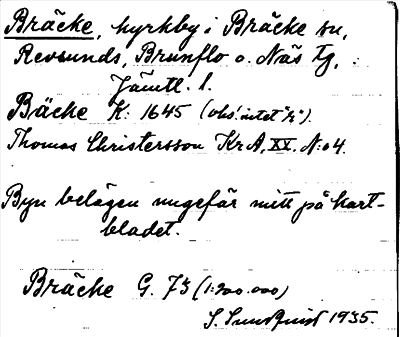 Bräcke, kyrkby i Bräcke sn,
Revsunds, Brunflo o. Näs tg,
Jämtl. l.
Bäcke K: 1645 (obs! intet "r").
Thomas Christersson KrA, XX. N:o 4.
Byn belägen ungefär mitt på kart-
bladet.
Bräcke G. 73 (1:200.000)
S. Sundquist 1935.